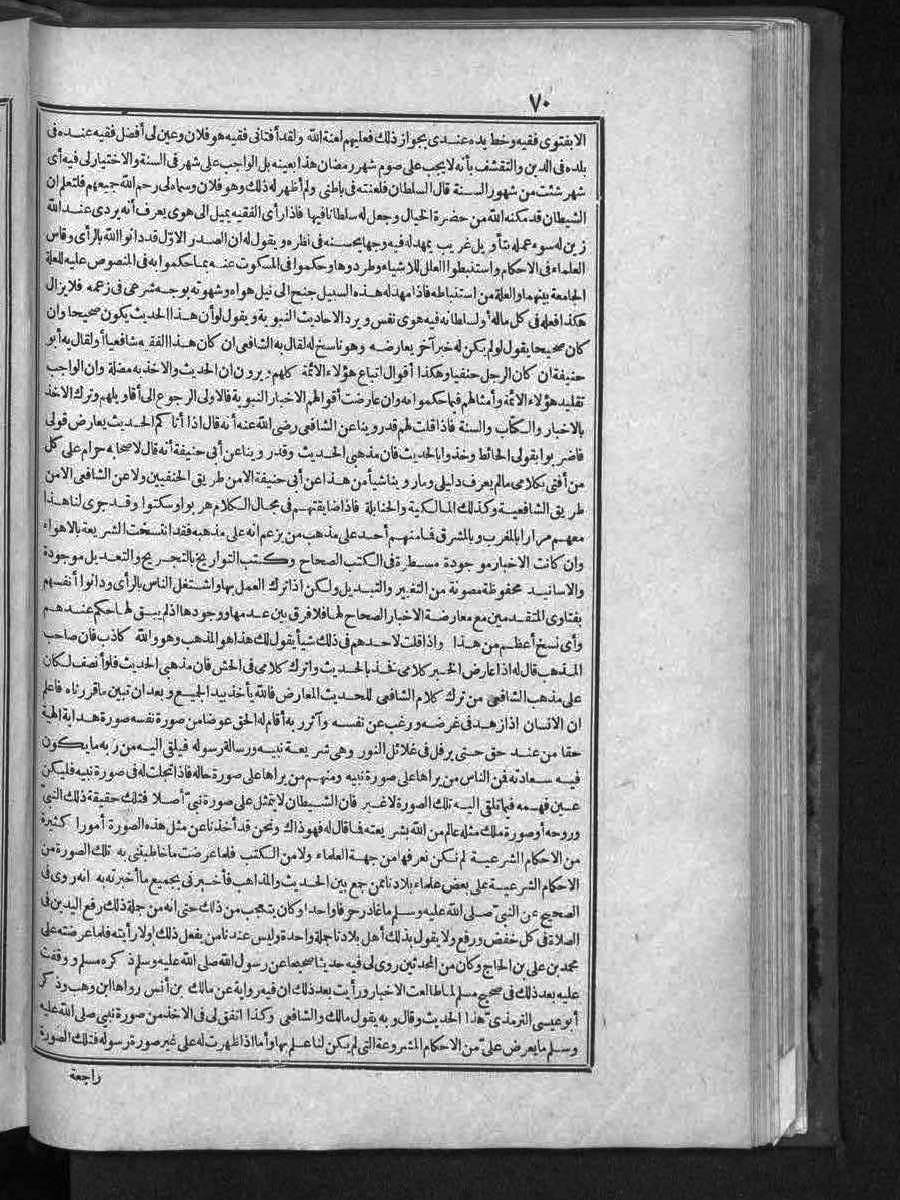 ٧٠
الا بفتوى فقيه وخط يده عندى بجواز ذلك فعليهم لعنة الله ولقد أفتانى فقيه هو فلان وعين لى أفضل فقيه عنده فى
بلده فى الدين والتقشف بأنه لا يجب على صوم شهر رمضان هذا بعينه بل الواجب على شهر فى السنة والاختيار لى فيه أى
شهر شئت من شهور السنة قال السلطان فلعنته فى باطنى ولم أظهر له ذلك وهو فلان وسماه لى رحم الله جميعهم فلتعلم ان
الشيطان قد مكنه الله من حضرة الخيال وجعل له سلطانا فيها فاذا رأى الفقيه يميل الى هوى يعرف أنه يردى عند الله
زين له سوء عمله بتأويل غريب يمهد له فيه وجها يحسنه فى نظره ويقول له ان الصدر الاول قد دانوا الله بالرأى وقاس
العلماء فى الاحكام واستنبطوا العلل للاشياء وطردوها وحكموا فى المسكوت عنه بما حكموا به فى المنصوص عليه للعلة
الجامعة بينهما والعلة من استنباطه فاذا مهد له هذه السبيل جنح الى نيل هواه وشهوته بوجه شرعى فى زعمه فلا يزال
هكذا فعله فى كل ماله أو لسلطانه فيه هوى نفس ويرد الاحاديث النبوية ويقول لو أن هذا الحديث يكون صحيحا وان
كان صحيحا يقول لو لم يكن له خبر آخر يعارضه وهو ناسخ له لقال به الشافعى ان كان هذا الفقيه شافعيا أو لقال به أبو
حنيفة ان كان الرجل حنفيا وهكذا أقوال اتباع هؤلاء الائمة كلهم ويرون ان الحديث والاخذ به مضلة وان الواجب
تقليد هؤلاء الائمة وأمثالهم فيما حكموا به وان عارضت أقوالهم الاخبار النبوية فالاولى الرجوع الى أقاويلهم وترك الاخذ
بالاخبار والكتاب والسنة فاذا قلت لهم قد روينا عن الشافعى رضى الله عنه أنه قال اذا أتاكم الحديث يعارض قولى
فاضربوا بقولى الحائط وخذوا بالحديث فان مذهبى الحديث وقد روينا عن أبى حنيفة أنه قال لاصحابه حرام على كل
من أفتى بكلامى مالم يعرف دليلى وما روينا شيأ من هذا عن أبى حنيفة الا من طريق الحنفيين ولا عن الشافعى الا من
طريق الشافعية وكذلك المالكية والحنابلة فاذا ضايقتهم فى مجال الكلام هربوا وسكتوا وقد جرى لنا هذا
معهم مرارا بالمغرب وبالمشرق فما منهم أحد على مذهب من يزعم انه على مذهبه فقد انتسخت الشريعة بالاهواء
وان كانت الاخبار موجودة مسطرة فى الكتب الصحاح وكتب التواريخ بالتجريح والتعديل موجودة
والاسانيد محفوظة مصونة من التغيير والتبديل ولكن اذا ترك العمل بها واشتغل الناس بالرأى ودانوا أنفسهم
بفتاوى المتقدمين مع معارضة الاخبار الصحاح لها فلا فرق بين عدمها ووجودها اذ لم يبق لها حكم عندهم
وأى نسخ أعظم من هذا واذا قلت لاحدهم فى ذلك شيأ يقول لك هذا هو المذهب وهو والله كاذب فان صاحب
المذهب قال له اذا عارض الخبر كلامى فخذ بالحديث واترك كلامى فى الحش فان مذهبى الحديث فلو أنصف لكان
على مذهب الشافعى من ترك كلام الشافعى للحديث المعارض فالله يأخذ بيد الجميع وبعد ان تبين ما قررناه فاعلم
ان الانسان اذا زهد فى غرضه ورغب عن نفسه وآثر ربه أقام له الحق عوضا من صورة نفسه صورة هداية الهية
حقا من عند حق حتى يرفل فى غلائل النور وهى شريعة نبيه ورسالة رسوله فيلقى اليه من ربه ما يكون
فيه سعادته فمن الناس من يراها على صورة نبيه ومنهم من يراها على صورة حاله فاذا تجلت له فى صورة نبيه فليكن
عين فهمه فيما تلقى اليه تلك الصورة لا غير فان الشيطان لا يتمثل على صورة نبى أصلا فتلك حقيقة ذلك النبى
وروحه أو صورة ملك مثله عالم من الله بشريعته فما قال له فهو ذاك ونحن قد أخذنا عن مثل هذه الصورة أمورا كثيرة
من الاحكام الشرعية لم نكن نعرفها من جهة العلماء ولا من الكتب فلما عرضت ما خاطبتنى به تلك الصورة من
الاحكام الشرعية على بعض علماء بلادنا ممن جمع بين الحديث والمذاهب فأخبرنى بجميع ما أخبرته به انه روى فى
الصحيح عن النبى صلى الله عليه وسلم ما غادر حرفا واحدا وكان يتعجب من ذلك حتى انه من جملة ذلك رفع اليدين فى
الصلاة فى كل خفض ورفع ولا يقول بذلك أهل بلادنا جملة واحدة وليس عندنا من يفعل ذلك ولا رأيته فلما عرضته على
محمد بن على بن الحاج وكان من المحدثين روى لى فيه حديثا صحيحا عن رسول الله صلى الله عليه وسلم ذكره مسلم ووقفت
عليه بعد ذلك فى صحيح مسلم لما طالعت الاخبار ورأيت بعد ذلك ان فيه رواية عن مالك بن أنس رواها ابن وهب وذكر
أبو عيسى الترمذى هذا الحديث وقال وبه يقول مالك والشافعى وكذا اتفق لى فى الاخذ من صورة نبيى صلى الله عليه
وسلم ما يعرض علىّ من الاحكام المشروعة التى لم يكن لنا علم بها وأما اذا ظهرت له على غير صورة رسوله فتلك الصورة
راجعة